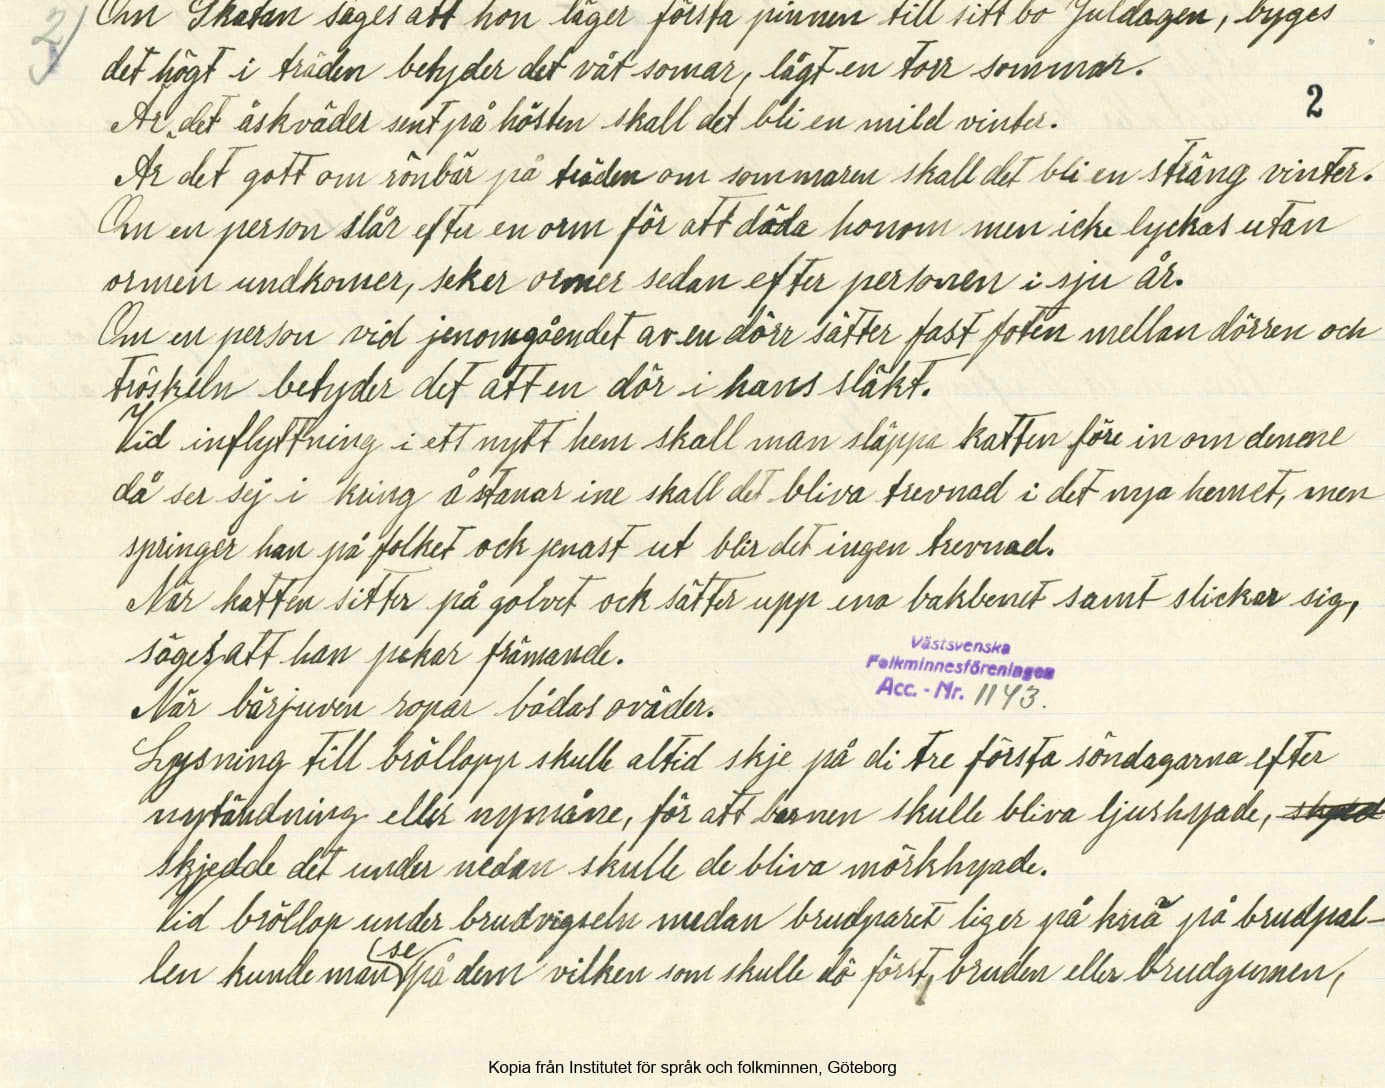 2)
Om Skatan säges att hon läger första pinnen till sitt bo Juldagen, byges
det högt i träden betyder det våt somar, lågt en torr sommar.
2
Är det åskväder sent på hösten skall det bli en mild vinter.
Är det gott om rönbär på träden om sommaren skall det bli en sträng vinter.
Om en person slår efter en orm för att döda honom men icke lyckas utan
ormen undkomer, seker ormer sedan efter personen i sju år.
Om en person vid jenomgåendet av en dörr sätter fast foten mellan dörren och
tröskeln betyder det att en dör i hans släkt.
Vid inflyttning i ett nytt hem skall man släppa katten före in om denene
då ser sej i kring å stanar ine skall det bliva trevnad i det nya hemet, men
springer han på folket ock jenast ut blir det ingen trevnad.
När katten sitter på golvet ock sätter upp ena bakbenet samt slicker sig,
säges att han pekar främande.
Västsvenska
Folkminnesföreningen
Acc. - Nr. 1143.
När bärjuven ropar bådas oväder.
Lysning till bröllopp skulle altid skje på di tre första söndagarna efter
nytändning eller nymåne, för att barnen skulle bliva ljushyade,
skjedde det under nedan skulle de bliva mörkhyade.
Vid bröllop under brudvigseln medan brudparet liger på knä på brudpal-
len kunde man se på dem vilken som skulle dö först, bruden eller brudgumen,
Kopia från Institutet för språk och folkminnen, Göteborg